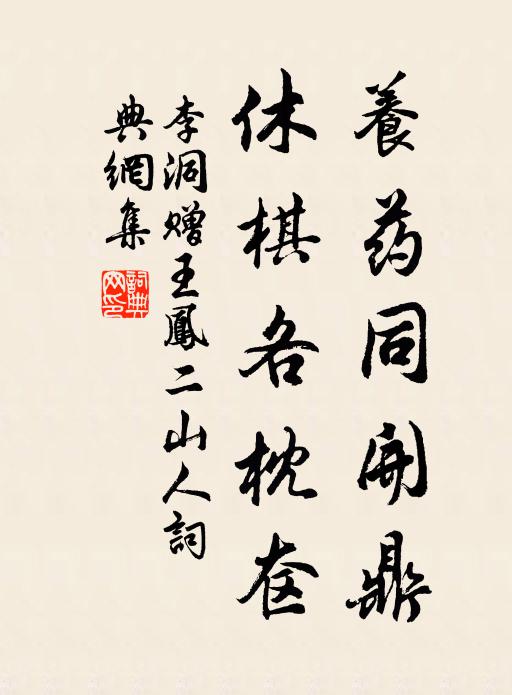 養药同開鼎
休棋各枕奁
李洞赠王鳳二山人詞
典網集
詞典网印